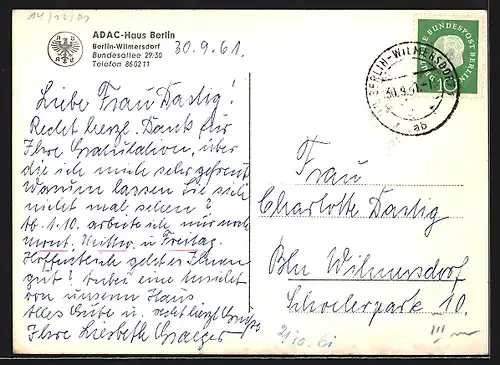 14/12/03
ADAC-Haus Berlin
Berlin-Wilmersdorf
Bundesallee 29/30
Telefon 860211
30.9.61.
DEUTSCHE BUNDESPOST BERLIN
10
BERLIN-WILMERSDORF
30.9.61
ab
Liebe Frau Dastig!
Recht herzl. Dank für
Ihre Gratulation, über
die ich mich sehr gefreut
Warum lassen Sie sich
nicht mal sehen?
Ab 1.10. arbeite ich nur noch
Mont. Mittw. u Freitag.
Hoffentlich geht es Ihnen
gut? Anbei eine Ansicht
von unserem Haus
Alles Gute u. recht herzl Grüße
Ihre Liesbeth Graeger
Frau
Charlotte Dastig
Bln Wilmersdorf
Schoelerpark 10.
2/10.61
III